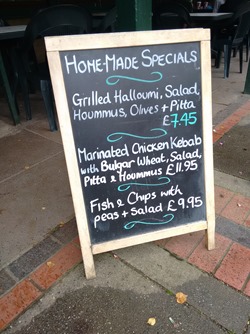 Home-Made Specials
Grilled Halloumi, Salad,
Hoummus, Olives + Pitta
£7.45
Marinated Chicken Kebab
with Bulgar Wheat, Salad,
Pitta & Hoummus £11.95
Fish & Chips with
peas + Salad £9.95